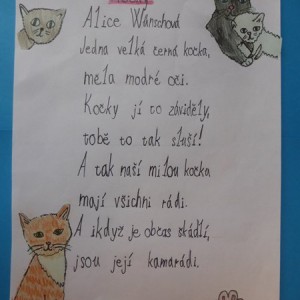 Alice Wünschová
Jedna velká černá kočka,
mela modré oči.
Kočky jí to záviděly,
tobě to tak sluší!
A tak naší milou kočka
mají všichni rádi.
A ikdyž je občas škádlí,
jsou její kamarádi.